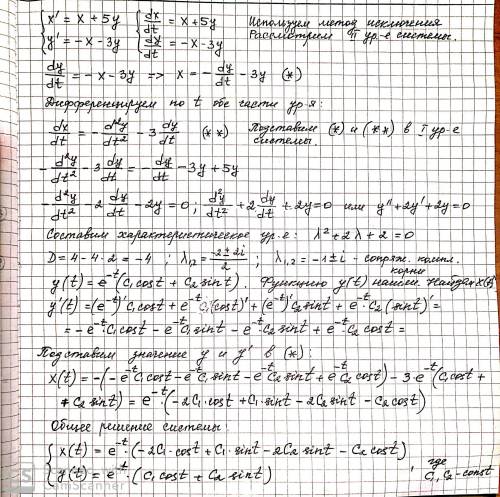 {x' = x + 5y {dx/dt = x + 5y Используем метод исключения
{y' = -x - 3y {dy/dt = -x - 3y Рассмотрим II ур-е системы.
dy/dt = -x - 3y => x = -dy/dt - 3y (*)
Дифференцируем по t обе части ур-я:
dx/dt = -d²y/dt² - 3 dy/dt (**) Подставим (*) и (**) в I ур-е
системы.
-d²y/dt² - 3 dy/dt = -dy/dt - 3y + 5y
-d²y/dt² - 2 dy/dt - 2y = 0; d²y/dt² + 2 dy/dt + 2y = 0 или y'' + 2y' + 2y = 0
Составим характеристическое ур-е: λ² + 2λ + 2 = 0
D = 4 - 4·2 = -4; λ₁,₂ = (-2 ± 2i)/2; λ₁,₂ = -1 ± i - сопряж. компл.
корни
y(t) = e^-t (C₁cost + C₂sint). Функцию y(t) нашли. Найдём x(t)
y'(t) = (e^-t)'C₁cost + e^-t C₁(cost)' + (e^-t)'C₂sint + e^-t C₂(sint)' =
= -e^-t C₁cost - e^-t C₁sint - e^-t C₂sint + e^-t C₂cost =
Подставим значение y и y' в (*):
x(t) = -(-e^-t C₁cost - e^-t C₁sint - e^-t C₂sint + e^-t C₂cost) - 3·e^-t (C₁cost +
+ C₂sint) = e^-t·(-2C₁·cost + C₁·sint - 2C₂sint - C₂cost)
Общее решение системы:
{x(t) = e^-t·(-2C₁·cost + C₁·sint - 2C₂sint - C₂cost)
{y(t) = e^-t·(C₁cost + C₂sint) , где
C₁, C₂ - const
CS CamScanner